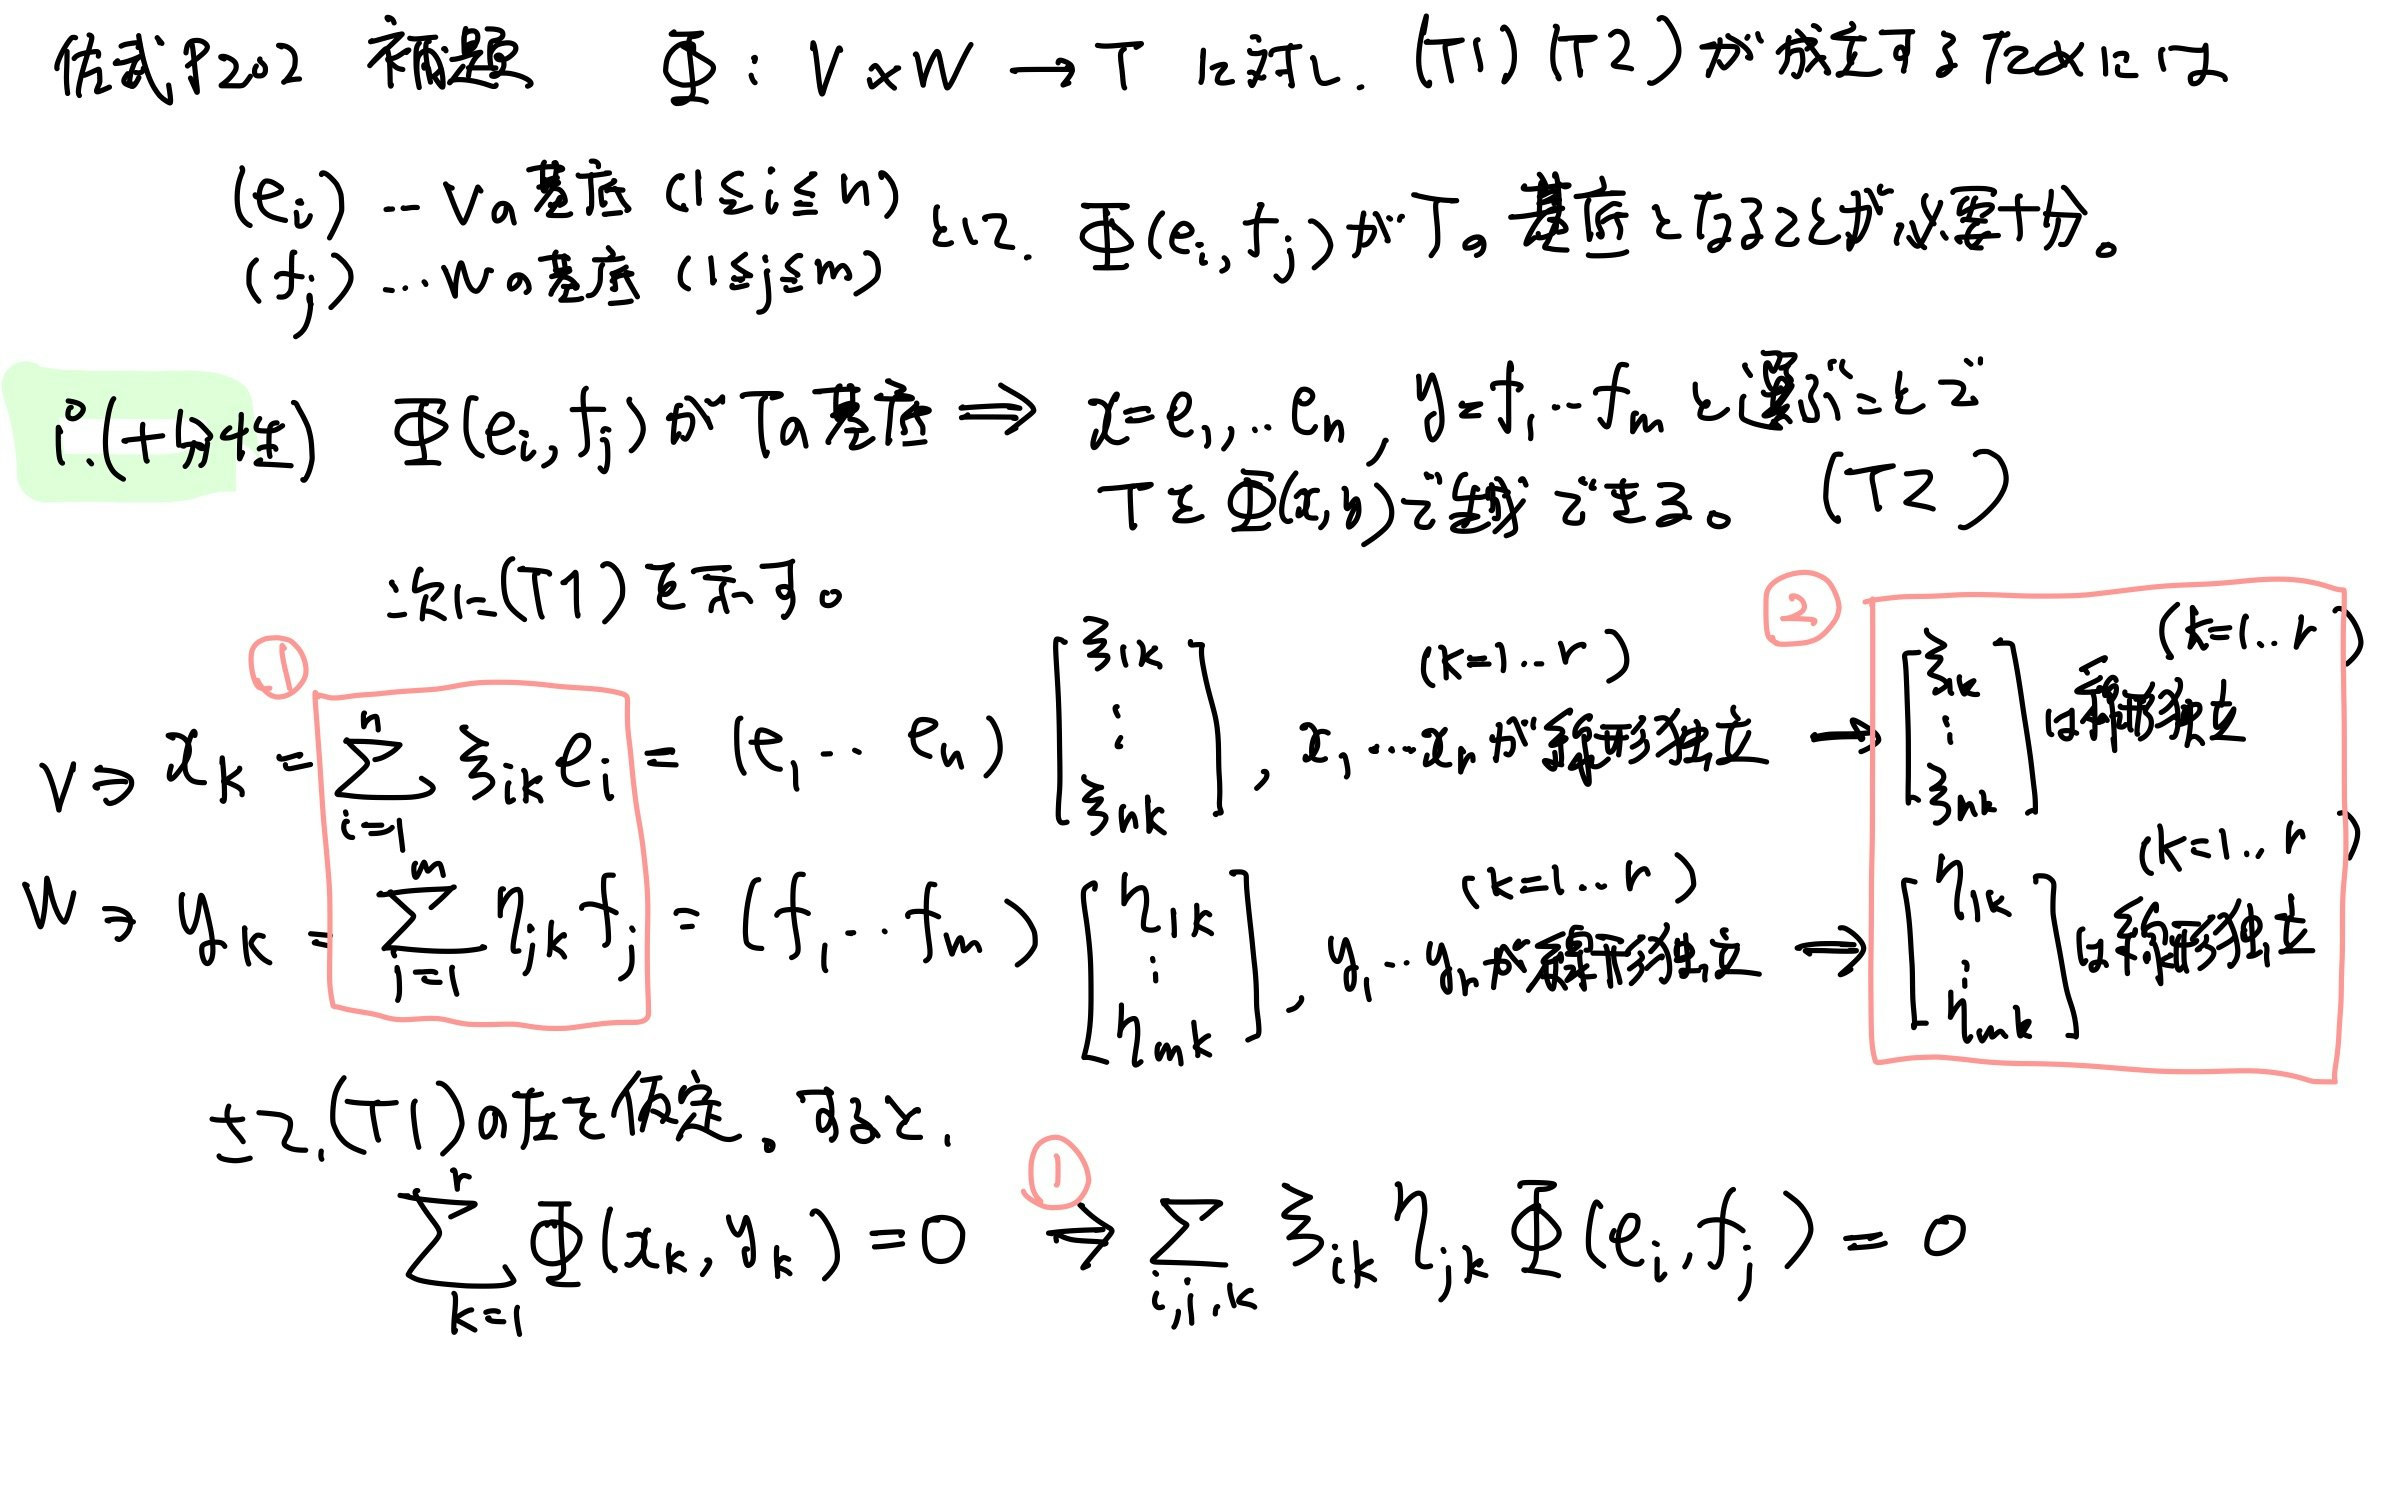 佐武P202 補題 Φ : V × W → T に対し、(T1)(T2)が成立するためには
(e_i) … Vの基底 (1≤i≤n)
(f_j) … Wの基底 (1≤j≤m) として、Φ(e_i, f_j)がTの基底となることが必要十分。
i.(十分性) Φ(e_i, f_j)がTの基底 ⟹ x=e_1, … e_n, y=f_1 … f_m と選ぶことで
TをΦ(x,y)で生成できる。 (T2)
次に(T1)を示す。
① ②
V∋ x_k = \sum_{i=1}^{n} ξ_{ik} e_i = (e_1 … e_n) [ξ_{1k} ⋮ ξ_{nk}], x_1, … x_r が線形独立 → [ξ_{1k} ⋮ ξ_{nk}] は線形独立 (k=1 … r) (k=1 … r)
W∋ y_k = \sum_{j=1}^{m} η_{jk} f_j = (f_1 … f_m) [η_{1k} ⋮ η_{mk}], y_1 … y_r が線形独立 ⟹ [η_{1k} ⋮ η_{mk}] は線形独立 (k=1 … r) (k=1 … r)
さて、(T1)の左を仮定。すると、
\sum_{k=1}^{r} Φ(x_k, y_k) = 0 ①⟹ \sum_{i,j,k} ξ_{ik} η_{jk} Φ(e_i, f_j) = 0